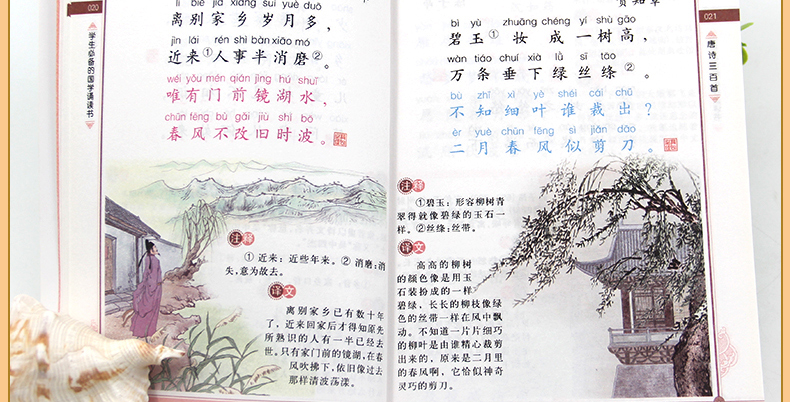 020
学生必备的国学诵读书
lí bié jiā xiāng suì yuè duō
离别家乡岁月多，
jìn lái rén shì bàn xiāo mó
近来①人事半消磨②。
wéi yǒu mén qián jìng hú shuǐ
唯有门前镜湖水，
chūn fēng bù gǎi jiù shí bō
春风不改旧时波。
注释
①近来：近些年来。②消磨：消
失，意为故去。
译文
离别家乡已有数十年
了，近来回家后才得知原先
所熟识的人有一半已经去
世。只有家门前的镜湖，在春
风吹拂下，依旧像过去
那样清波荡漾。
021
唐诗三百首
贺知章
bì yù zhuāng chéng yí shù gāo
碧玉①妆成一树高，
wàn tiáo chuí xià lǜ sī tāo
万条垂下绿丝绦②。
bù zhī xì yè shéi cái chū
不知细叶谁裁出？
èr yuè chūn fēng sì jiǎn dāo
二月春风似剪刀。
注释
①碧玉：形容柳树青
翠得就像碧绿的玉石一
样。②丝绦：丝带。
译文
高高的柳树
的颜色像是用玉
石装扮成的一样
碧绿，长长的柳枝像绿
色的丝带一样在风中飘
动。不知道一片片细巧
的柳叶是由谁精心裁剪
出来的，原来是二月里
的春风啊，它恰似神奇
灵巧的剪刀。